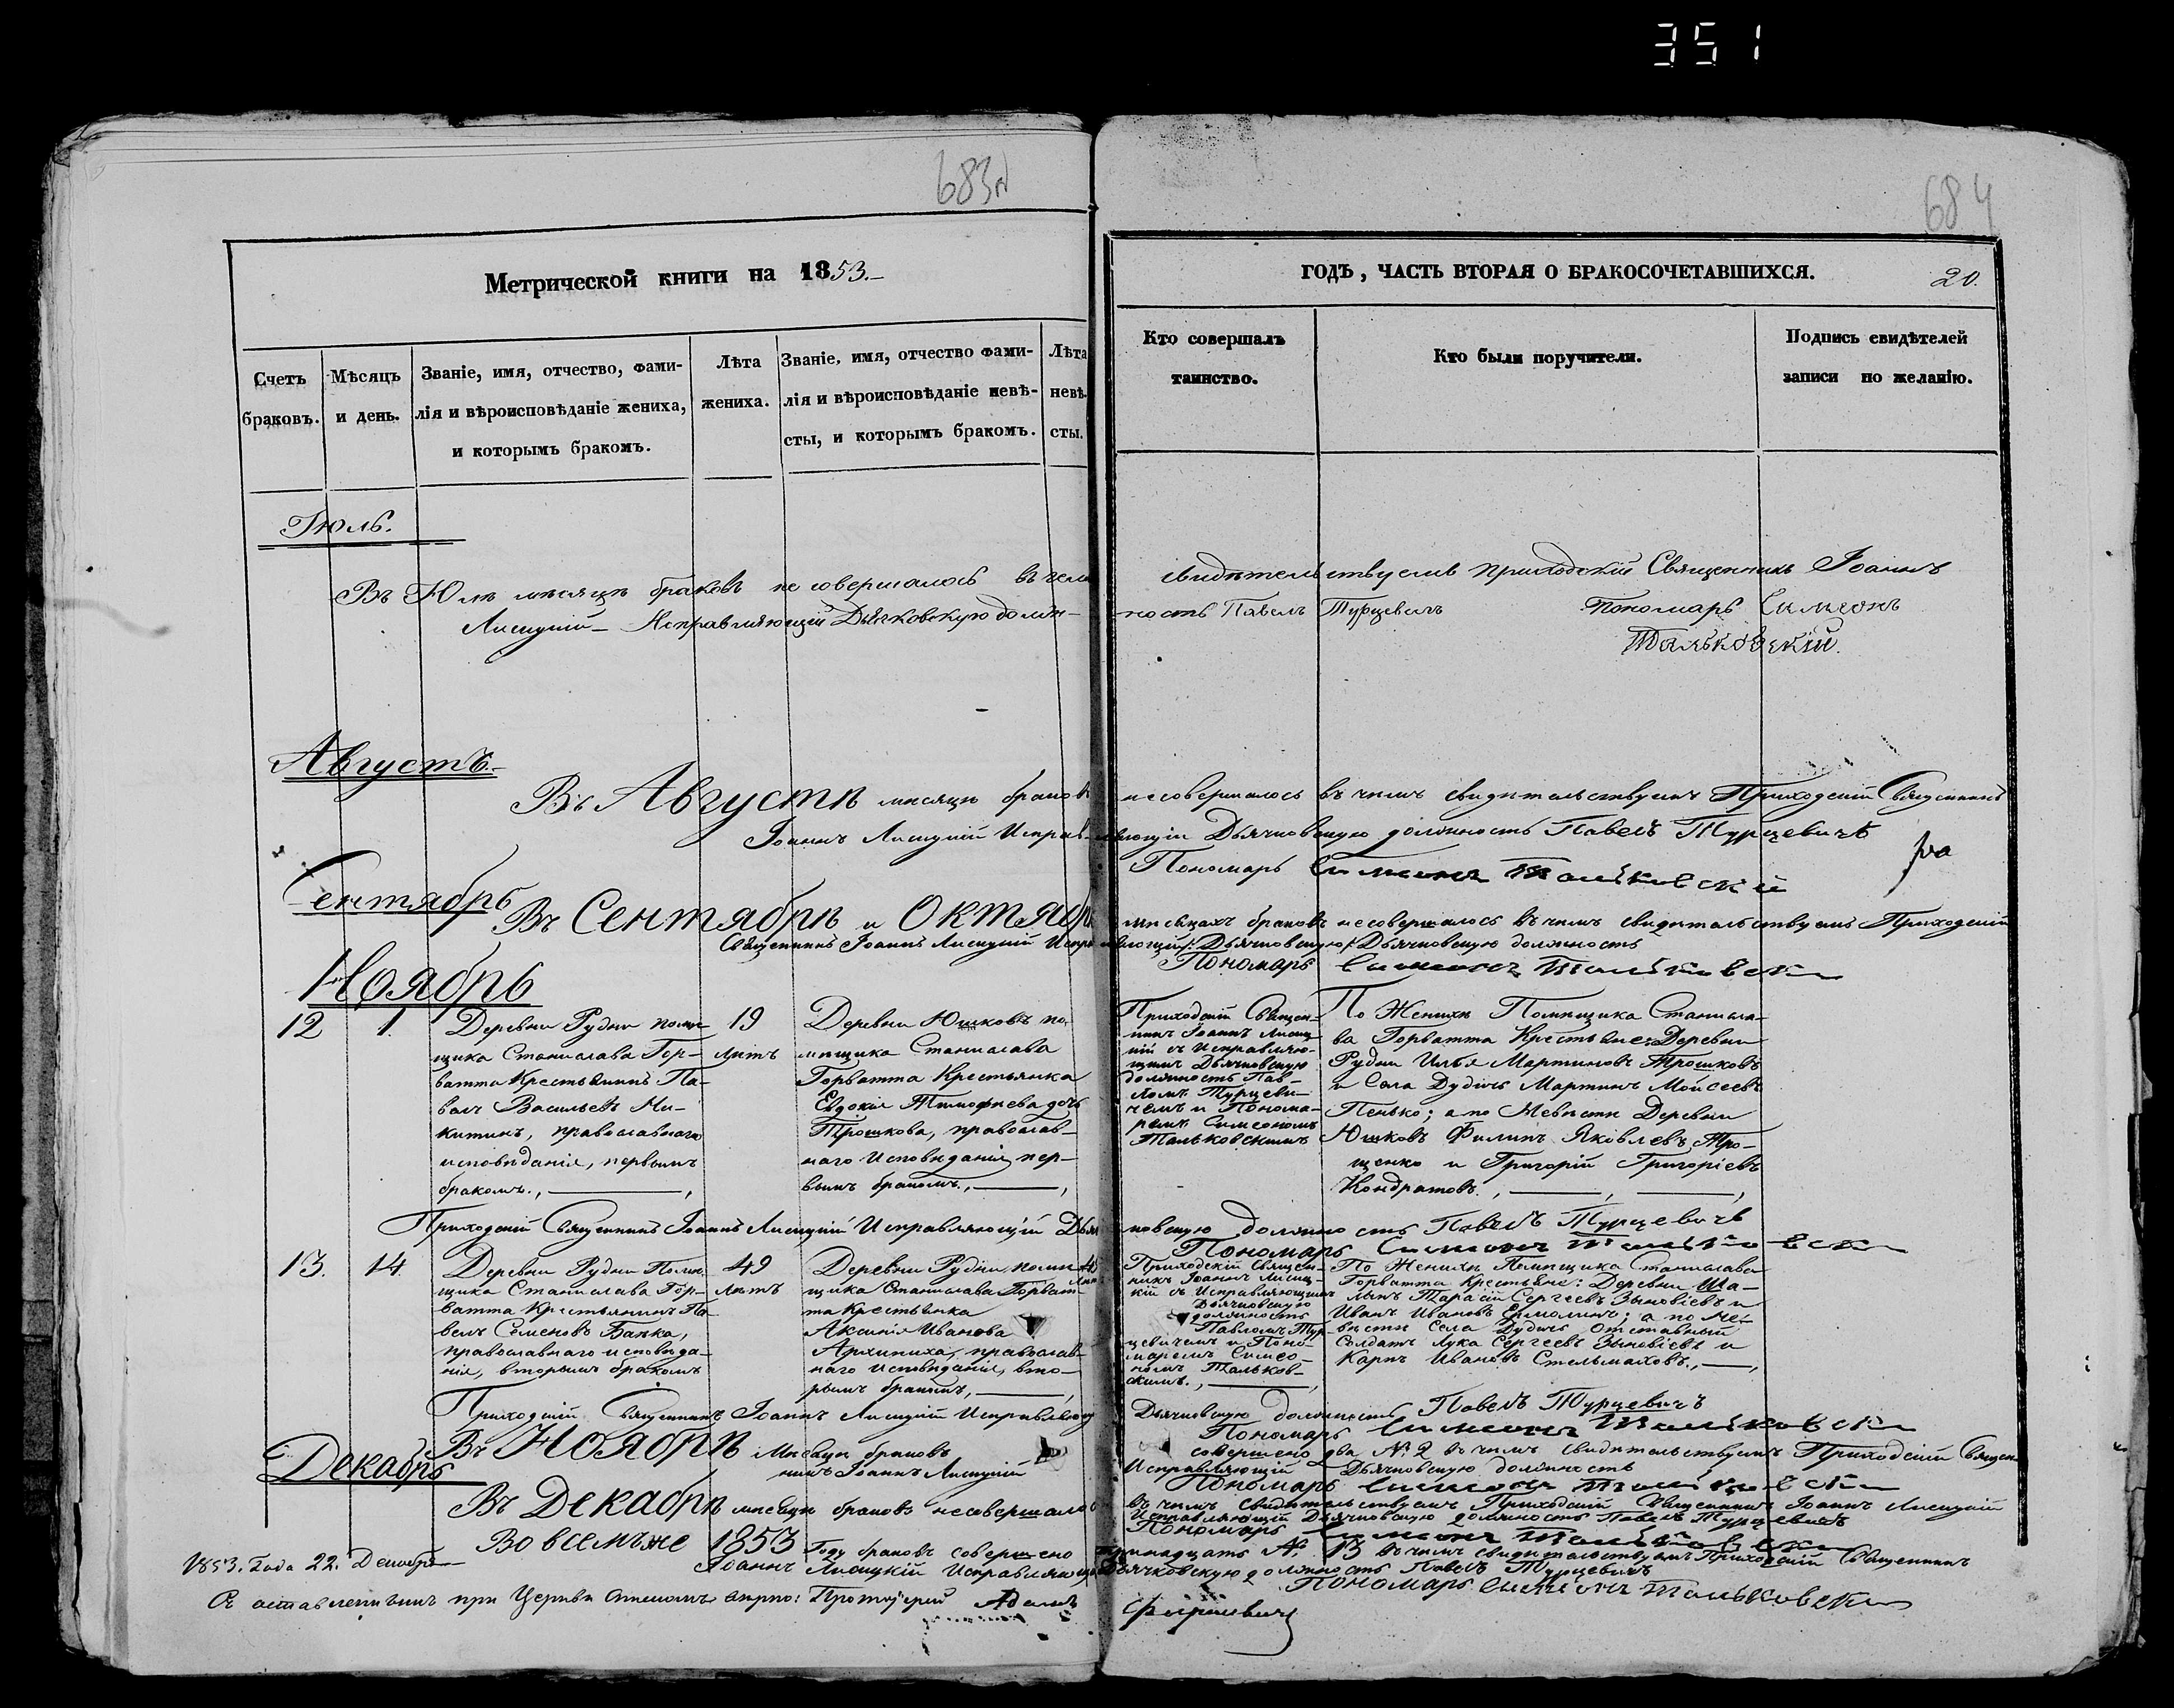 351
683об
684
Метрической книги на 1853.
ГОДЪ, ЧАСТЬ ВТОРАЯ О БРАКОСОЧЕТАВШИХСЯ.
20.
Счетъ браковъ.
Мѣсяцъ и день.
Званіе, имя, отчество, фами-
лія и вѣроисповѣданіе жениха,
и которымъ бракомъ.
Лѣта жениха.
Званіе, имя, отчество фами-
лія и вѣроисповѣданіе невѣ-
сты, и которымъ бракомъ.
Лѣта
невѣ-
сты.
Кто совершалъ
таинство.
Кто были поручители.
Подпись свидѣтелей
записи по желанію.
Іюль.
Въ Юлѣ мѣсяцѣ браковъ не совершалось въ чемъ свидѣтельствуемъ приходскій Священникъ Іоаннъ
Лисицкій Исправляющій Дьячковскую долж-ность Павелъ Турцевичъ Пономарь Симеонъ
Тальковскій.
Августъ.
Въ Августѣ мѣсяцѣ браковъ несовершалось въ чемъ свидѣтельствуемъ Приходскій Священникъ
Іоаннъ Лисицкій Исправляющій Дьячковскую должность Павелъ Турцевичъ
Пономарь Симеонъ Тальковскій
Сентябрь
Въ Сентябрѣ и Октябрѣ мѣсяцахъ браковъ несовершалось въ чемъ свидѣтельствуемъ Приходскій
Священникъ Іоаннъ Лисицкій Исправляющій Дьячковскую Дьячковскую должность
Пономарь Симеонъ Тальковскій
Ноябрь
12
1.
Деревни Рудни помѣ-
щика Станислава Гор-
ватта Крестьянинъ Па-
велъ Васильевъ Ни-
китинъ, православнаго
исповѣданія, первымъ
бракомъ.,
19
лѣтъ
Деревни Юшковъ по-
мѣщика Станислава
Горватта Крестьянка
Евдокія Тимофѣева дочь
Трошкова, православ-
наго исповѣданія, пер-
вымъ бракомъ.,
Приходскій Священ-
никъ Іоаннъ Лисиц-
кій съ Исправляю-
щимъ Дьячковскую
должность Пав-
ломъ Турцеви-
чемъ и Понома-
ремъ Симеономъ
Тальковскимъ
По Женихѣ Помѣщика Станисла-
ва Горватта Крестьяне: Деревни
Рудни Илья Мартиновъ Трошковъ
и Села Дудичъ Мартинъ Мойсеевъ
Пенько; а по Невѣстѣ Деревни
Юшковъ Филипъ Яковлевъ Тро-
щенко и Григорій Григоріевъ
Кондратовъ.,
Приходскій Священникъ Іоаннъ Лисицкій Исправляющій Дьячковскую должность Павелъ Турцевичъ
Пономарь Симеонъ Тальковскій
13.
14.
Деревни Рудни Помѣ-
щика Станислава Гор-
ватта Крестьянинъ Па-
велъ Семеновъ Бапка,
православнаго исповѣда-
нія, вторымъ бракомъ
49
лѣтъ
Деревни Рудни, помѣ-
щика Станислава Горват-
та Крестьянка
Аксинія Иванова
Архипиха, православ-
наго исповѣданія, вто-
рымъ бракомъ,
Приходскій Священ-
никъ Іоаннъ Лисиц-
кій съ Исправляющимъ
Дьячковскую
должность
Павломъ Тур-
цевичемъ и Поно-
маремъ Симео-
номъ Тальков-
скимъ.,
По Женихѣ Помѣщика Станислава
Горватта Крестьяне: Деревни Ша-
Тарасій Сергеевъ Зыновіевъ и
Иванъ Ивановъ Ермолинъ; а по Не-
вѣстѣ Села Дудичъ Отставный
Солдатъ Лука Сергеевъ Зыновіевъ и
Карпъ Ивановъ Стельмаховъ.,
Приходскій Священникъ Іоаннъ Лисицкій Исправляющій Дьячковскую должность Павелъ Турцевичъ
Пономарь Симеонъ Тальковскій
Въ Ноябрѣ Мѣсяцѣ браковъ совершено два № 2 въ чемъ свидѣтельствуемъ Приходскій Священ-
никъ Іоаннъ Лисицкій Исправляющій Дьячковскую должность
Пономарь Симеонъ Тальковскій
Декабрь
Въ Декабрѣ мѣсяцѣ браковъ несовершалось въ чемъ свидѣтельствуемъ Приходскій Священникъ Іоаннъ Лисицкій
Исправляющій Дьячковскую должность Павелъ Турцевичъ
Пономарь Симеонъ Тальковскій
Во всемъ же 1853 Году браковъ совершено тринадцать № 13 въ чемъ свидѣтельствуемъ Приходскій Священникъ
Іоаннъ Лисицкій Исправляющій Дьячковскую должность Павелъ Турцевичъ
Пономарь Симеонъ Тальковскій
1853. Года 22. Декабря
Съ оставленнымъ при Церкви Протоіерей Адамъ